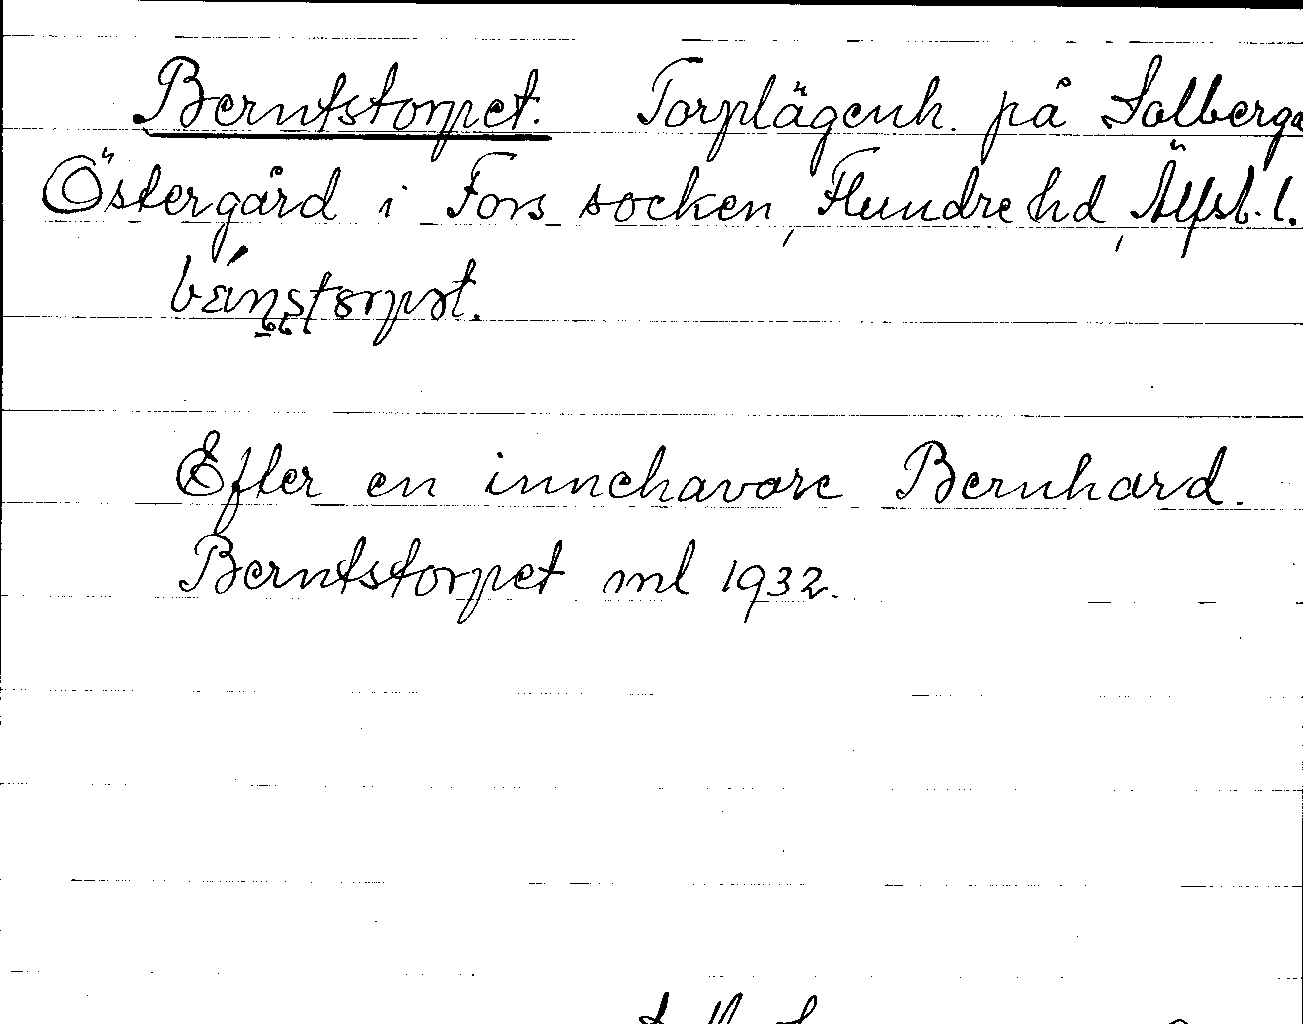 Berntstorpet. Torplägenh. på Solberga
Östergård i Fors socken, Flundre hd, Älfsb. l.
Efter en innehavare Bernhard.
Berntstorpet ml 1932.